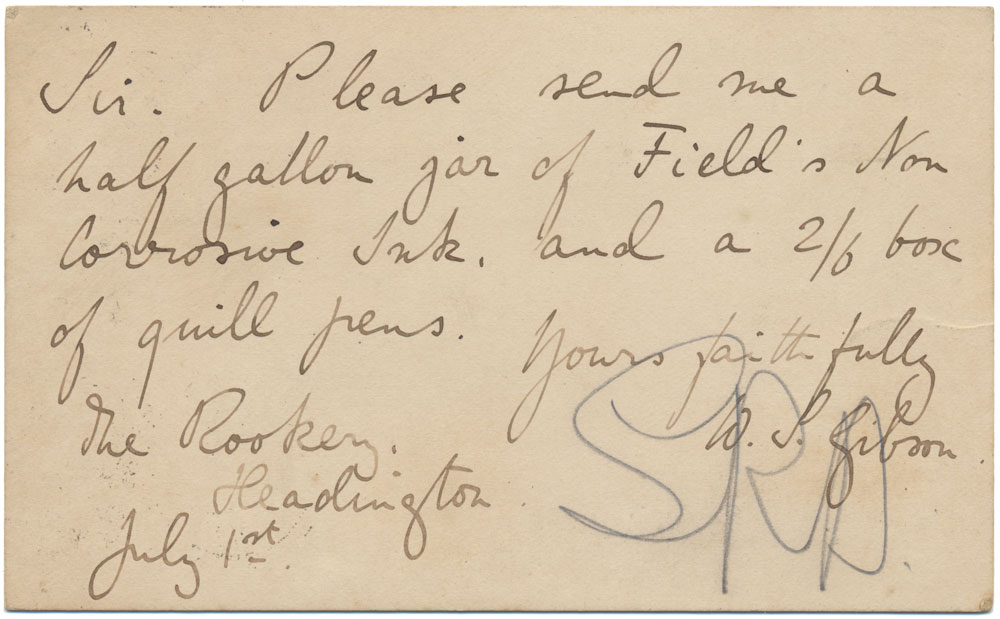 Sir. Please send me a
half gallon jar of Field's Non
Corrosive Ink. and a 2/6 box
of quill pens.
Yours faithfully
W. S. Gibson.
The Rookery.
Headington.
July 1st.
SRD.